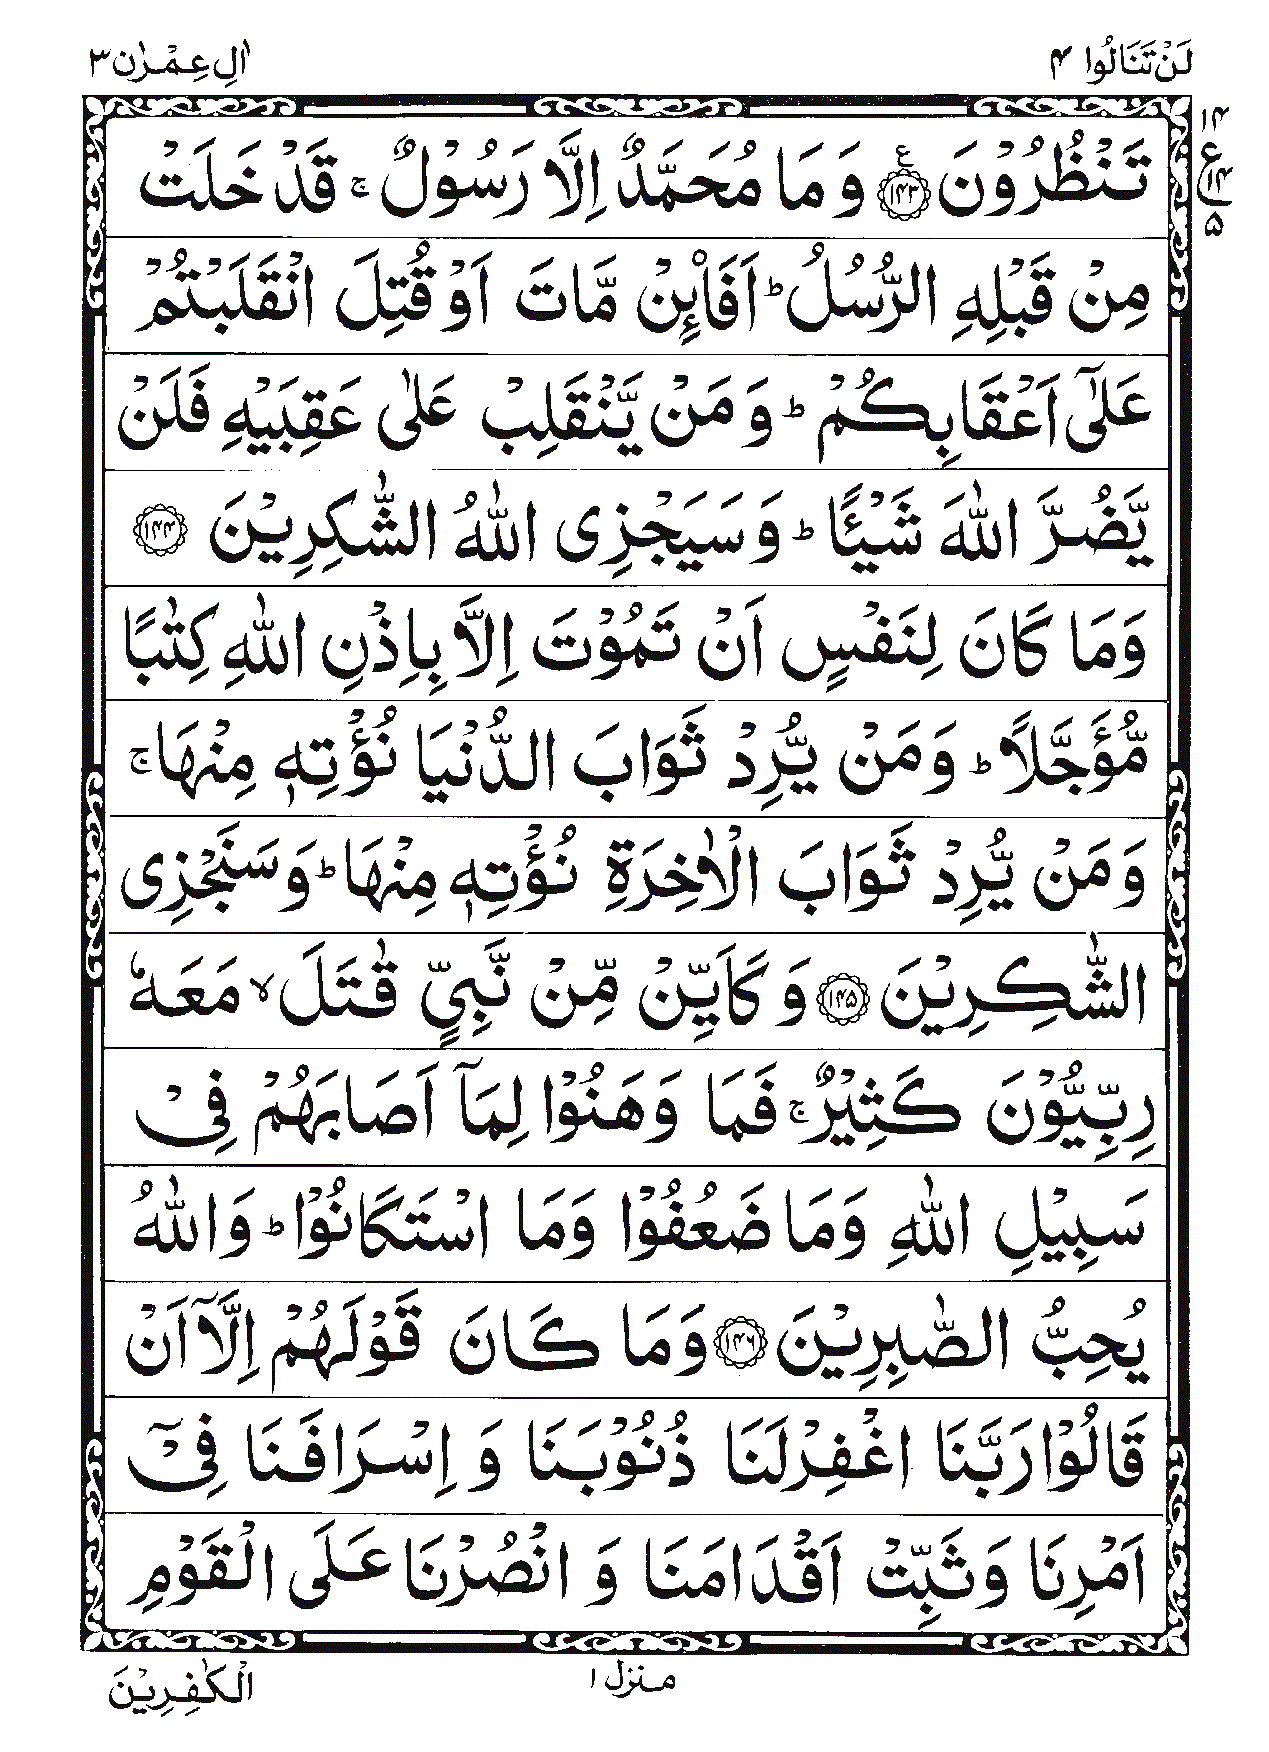 لَنْ تَنَالُوا ۴
اٰلِ عِمْرٰن ۳
۱۴
ع
۱۴
۵
تَنْظُرُوْنَ ۝۱۴۳ ع وَ مَا مُحَمَّدٌ اِلَّا رَسُوْلٌ ۚ قَدْ خَلَتْ
مِنْ قَبْلِهِ الرُّسُلُ ؕ اَفَا۟ئِنْ مَّاتَ اَوْ قُتِلَ انْقَلَبْتُمْ
عَلٰۤى اَعْقَابِكُمْ ؕ وَ مَنْ يَّنْقَلِبْ عَلٰى عَقِبَيْهِ فَلَنْ
يَّضُرَّ اللّٰهَ شَيْـًٔا ؕ وَ سَيَجْزِى اللّٰهُ الشّٰكِرِيْنَ ۝۱۴۴
وَمَا كَانَ لِنَفْسٍ اَنْ تَمُوْتَ اِلَّا بِاِذْنِ اللّٰهِ كِتٰبًا
مُّؤَجَّلًا ؕ وَ مَنْ يُّرِدْ ثَوَابَ الدُّنْيَا نُؤْتِهٖ مِنْهَا ۚ
وَ مَنْ يُّرِدْ ثَوَابَ الْاٰخِرَةِ نُؤْتِهٖ مِنْهَا ؕ وَ سَنَجْزِى
الشّٰكِرِيْنَ ۝۱۴۵ وَ كَاَيِّنْ مِّنْ نَّبِيٍّ قٰتَلَ ۙ مَعَهٗ
رِبِّيُّوْنَ كَثِيْرٌ ۚ فَمَا وَهَنُوْا لِمَاۤ اَصَابَهُمْ فِيْ
سَبِيْلِ اللّٰهِ وَمَا ضَعُفُوْا وَمَا اسْتَكَانُوْا ؕ وَاللّٰهُ
يُحِبُّ الصّٰبِرِيْنَ ۝۱۴۶ وَمَا كَانَ قَوْلَهُمْ اِلَّاۤ اَنْ
قَالُوْا رَبَّنَا اغْفِرْلَنَا ذُنُوْبَنَا وَ اِسْرَافَنَا فِيْۤ
اَمْرِنَا وَ ثَبِّتْ اَقْدَامَنَا وَ انْصُرْنَا عَلَى الْقَوْمِ
منزل ۱
الْكٰفِرِيْنَ